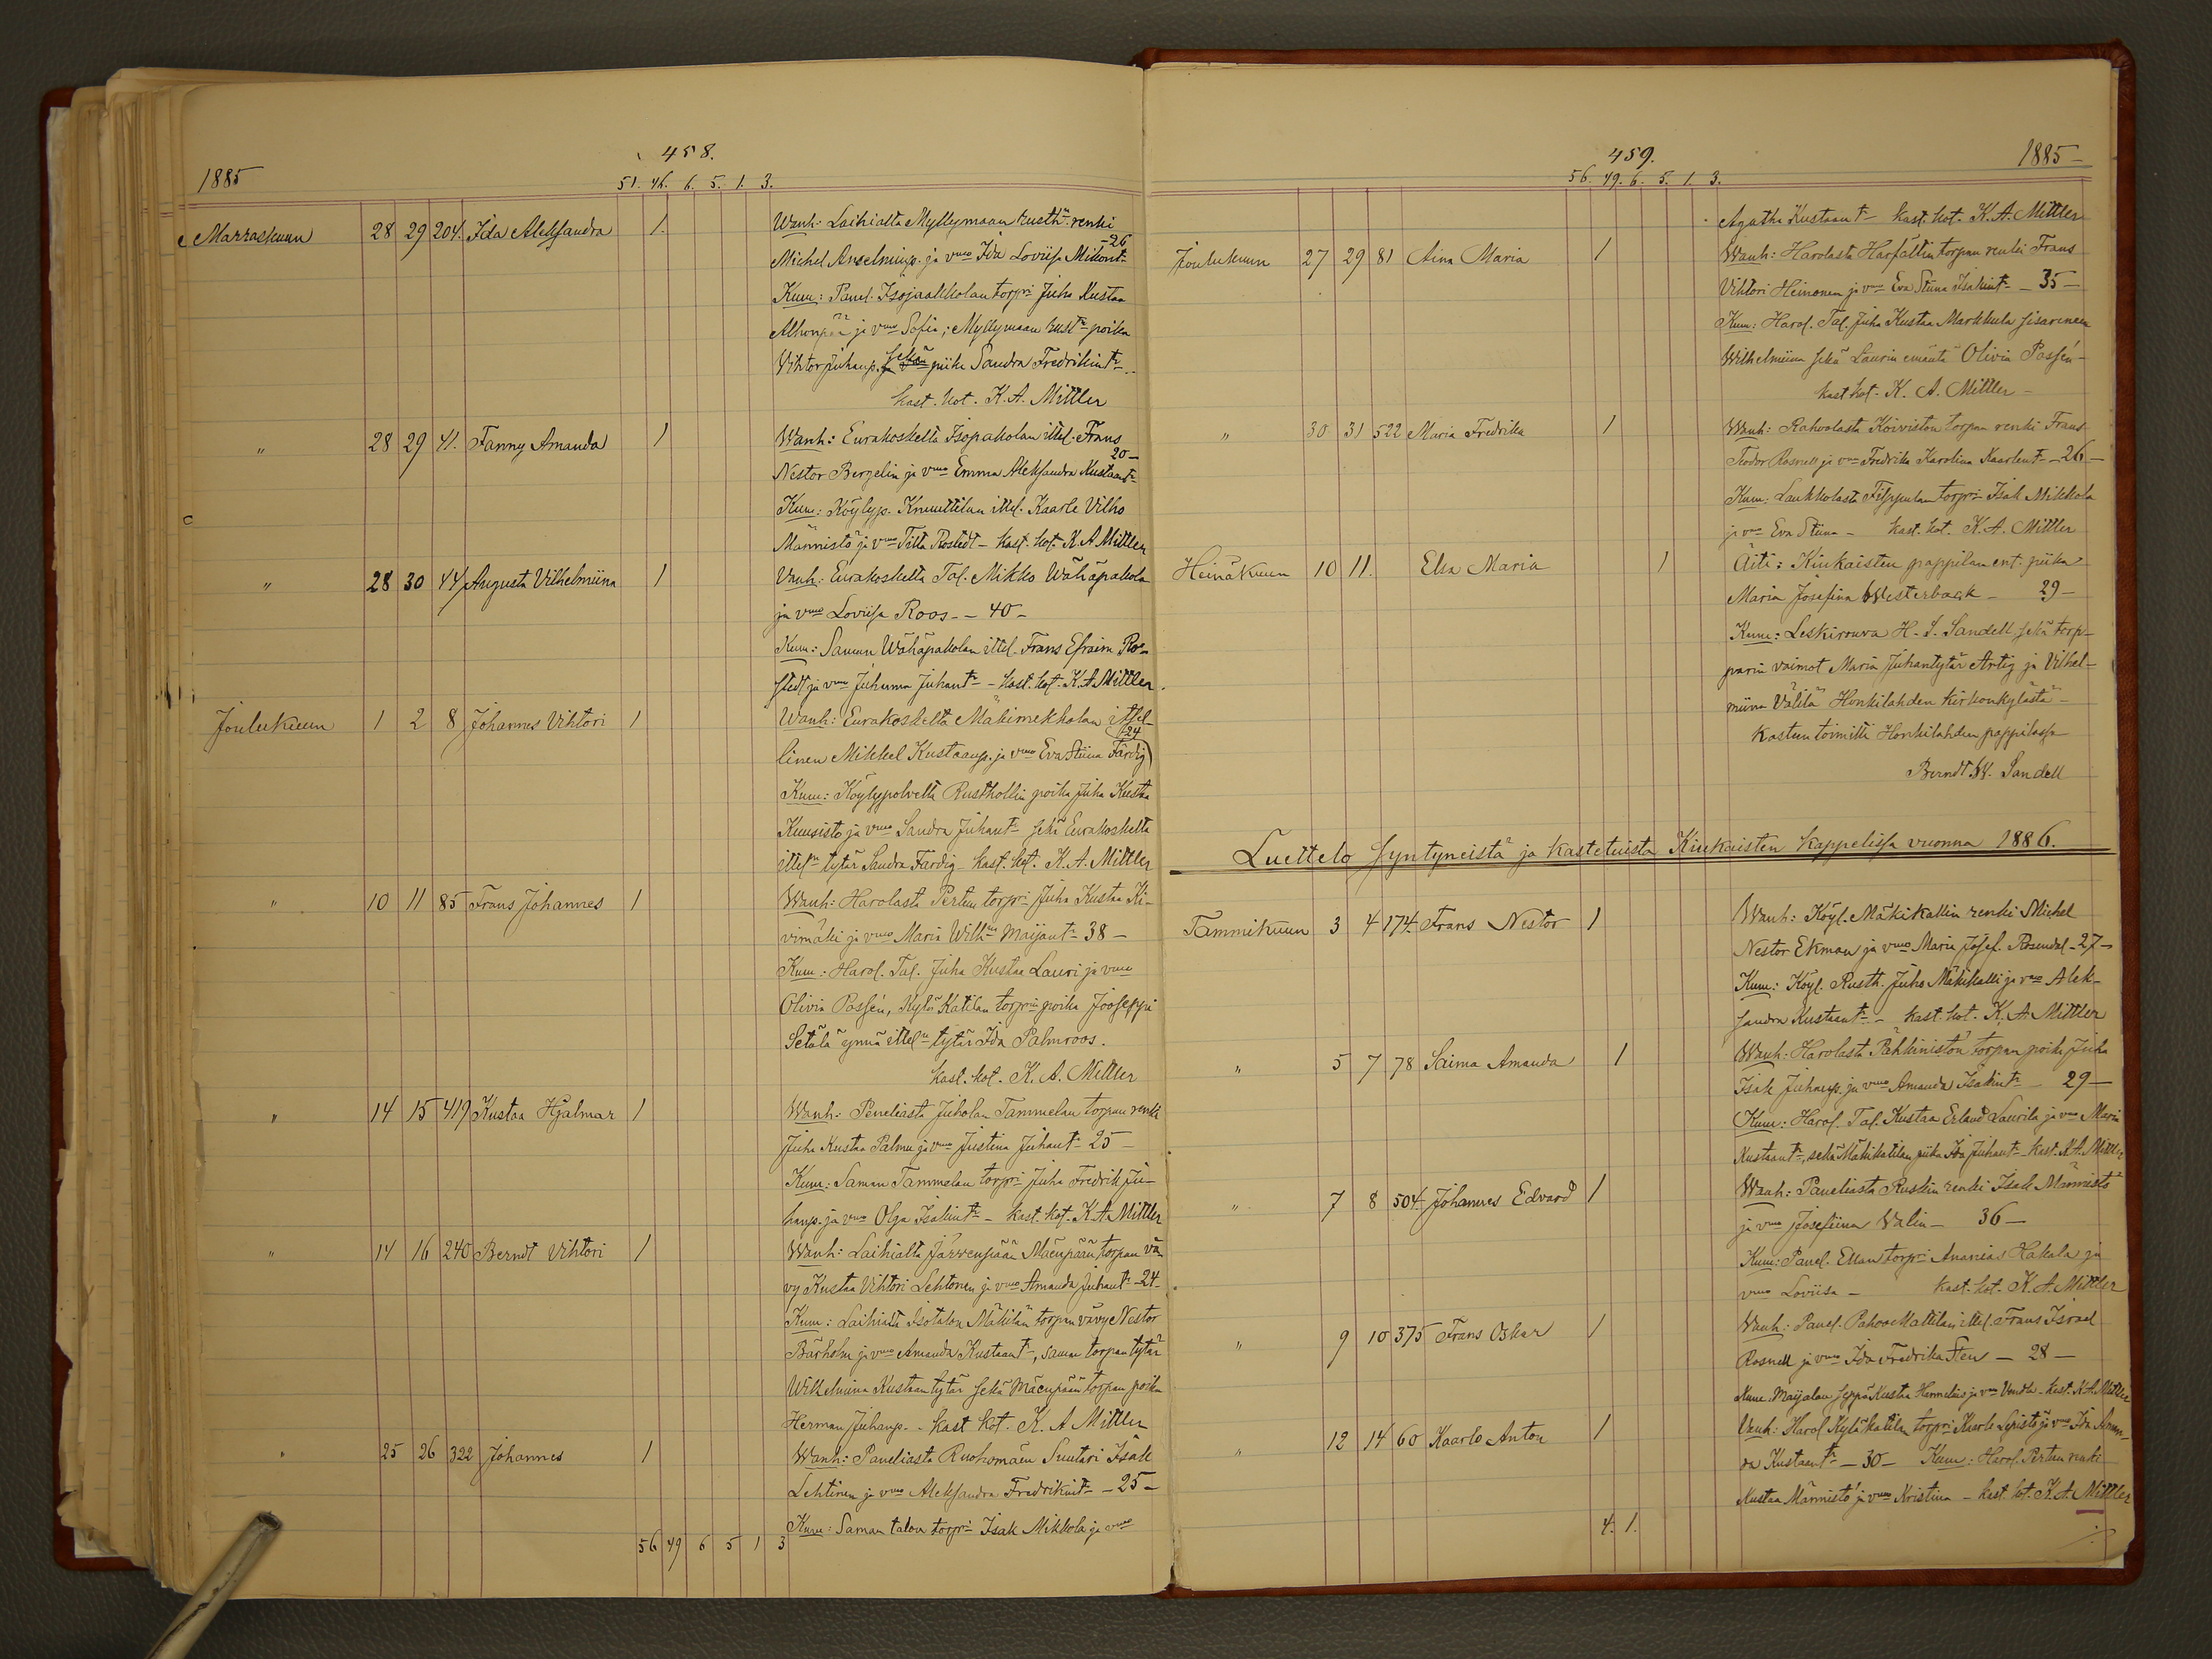 458.
1885
51. 46. 6. 5. 1. 3.
Marraskuun 28 29 204. Ida Aleksandra 1. Wanh: Laihialta Myllymaan rusth:n renki
Michel Anselminp. ja vmo Ida Loviisa Mikont: -26
Kum: Panel. Isojaakkolan torpri Juha Kustaa
ja vmo Sofia; Myllymaan rust:n poika
Vihtor Juhanp. sekä piika Sandra Fredrikint:
kast. kot. K. A. Mittler
" 28 29 41. Fanny Amanda 1 Wanh: Eurakoskelta Isopakolan ittel. Frans
Nestor Bergelin ja vmo Emma Aleksandra Kustaant: 20-
Kum: Köylyp. Knuuttilan ittel. Kaarle Vilho
Männistö ja vmo Tilta Rostedt - kast. kot. K. A. Mittler
" 28 30 44 Augusta Vilhelmiina 1 Vanh: Eurakoskelta Tal. Mikko Wähäpakola
ja vmo Loviisa Roos - 40 -
Kum: Samun Wähäpakolan ittel. Frans Efraim Ros-
stedt ja vmo Juhanna Juhant: - Kast. kot. K. A. Mittler
Joulukuun 1 2 8 Johannes Vihtori 1 Wanh: Eurakoskelta Mäkimekkolan ittel-
linen Mikkel Kustaanp. ja vmo Eva Stiina Färdig (24)
Kum: Köylypolvelta Rusthollin poika Juha Kustaa
Kuusisto ja vmo Sandra Juhant: sekä Eurakoskelta
ittel:n tytär Sandra Färdig kast. kot. K. A. Mittler
" 10 11 85 Frans Johannes 1 Wanh: Harolasta Pertun torpri Juha Kustaa Ki-
vimäki ja vmo Maria Wilh:na Maijant: 38 -
Kum: Harol. Tal. Juha Kustaa Lauri ja vmo
Olivia Possén, Kylä Katilan torprin poika Jooseppi
Setälä ynnä ittel:n tytär Ida Palmroos.
kast. kot. K. A. Mittler
" 14 15 419 Kustaa Hjalmar 1 Wanh: Peneliasta Juholan Tammelan torpan renki
Juha Kustaa Palmu ja vmo Justina Juhant: 25 -
Kum: Saman Tammelan torpri Juha Fredrik Ju-
hanp. ja vmo Olga Isakint: - kast. kot. K. A. Mittler
" 14 16 240 Berndt Vihtori 1 Wanh: Laihialta Järvenpään Mäenpään torpan vä-
vy Kustaa Vihtori Lehtonen ja vmo Amanda Juhant: -24-
Kum: Laihialta Isotalon Mäkilän torpan vävy Nestor
Bärholm ja vmo Amanda Kustaant:, saman torpan tytär
Wilhelmina Kustaan tytär sekä Mäenpään torpan poika
Herman Juhanp. - kast. kot. K. A. Mittler
" 25 26 322 Johannes 1 Wanh: Paneliasta Ruohomäen Suutari Isak
Lehtinen ja vmo Aleksandra Fredrikint: - 25 -
Kum: Saman talon torpri Isak Mikkola ja vmo
56 49 6 5 1 3
459.
1885
56. 49. 6. 5. 1. 3.
Agatha Kustaant: - kast. kot. K. A. Mittler
Joulukuun 27 29 81 Aina Maria 1 Wanh: Harolasta Harfältin torpan renki Frans
Vihtori Heinonen ja vmo Eva Stiina Isakint: - 35 -
Kum: Harol. Tal. Juha Kustaa Markkula sisarineen
Wilhelmiina sekä Laurin emäntä Olivia Possén -
kast. kot. K. A. Mittler -
" 30 31 522 Maria Fredrika 1 Wanh: Rahvolasta Koiviston torpan renki Frans
Teodor Rosnell ja vmo Fredrika Karolina Kaarlent: - 26 -
Kum: Laukkolasta Filppulan torpri Isak Mikkola
ja vmo Eva Stiina - kast. kot. K. A. Mittler
Heinäkuun 10 11. Elsa Maria 1 Äiti: Kiukaisten pappilan ent. piika
Maria Josefina Westerback - 29 -
Kum: Leskirouva H. S. Sandell, sekä torp-
parin vaimot Maria Juhantytär Artig ja Vilhel-
miina Välilä Honkilahden kirkonkylästä -
Kasteen toimitti Honkilahden pappilassa
Berndt W. Sandell
Luettelo syntyneistä ja kastetuista Kiukaisten kappelissa vuonna 1886.
Tammikuun 3 4 174. Frans Nestor 1 Wanh: Köyl. Mäkikallin renki Michel
Nestor Ekman ja vmo Maria Josef. Rosendal - 27 -
Kum: Köyl. Rusth. Juho Mäkikalli ja vmo Alek-
sandra Kustaant: - kast. kot. K. A. Mittler
" 5 7 78 Saima Amanda 1 Wanh: Harolasta Pähkinistön torpan poika Juha
Isak Juhanp. ja vmo Amanda Isakint: - 29 -
Kum: Harol. Tal. Kustaa Erland Laurila ja vmo Maria
Kustaant:, sekä Mäkikatilan piika Ida Juhant: kast. K. A. Mittler
" 7 8 504. Johannes Edvard 1 Wanh: Paneliasta Ruskin renki Isak Männistö
ja vmo Josefiina Walin - 36 -
Kum: Panel. Ellan torpri Ananias Hakala ja
vmo Loviisa - kast. kot. K. A. Mittler
" 9 10 375 Frans Oskar 1 Wanh: Panel. Pahoo Mattilan ittel. Frans Israel
Rosnell ja vmo Ida Fredrika Sten - 28 -
Kum. Maijalan seppä Kustaa Hermelius ja vmo Vendla - kast. K. A. Mittler
" 12 14 60 Kaarlo Anton 1 Vanh: Harol. Kyläkatilan torpri Kaarle Lepistö ja vmo Ida Aman-
da Kustaant: - 30 - Kum: Harol. Pertun renki
Kustaa Männistö ja vmo Kristina - kast. kot. K. A. Mittler
4. 1.